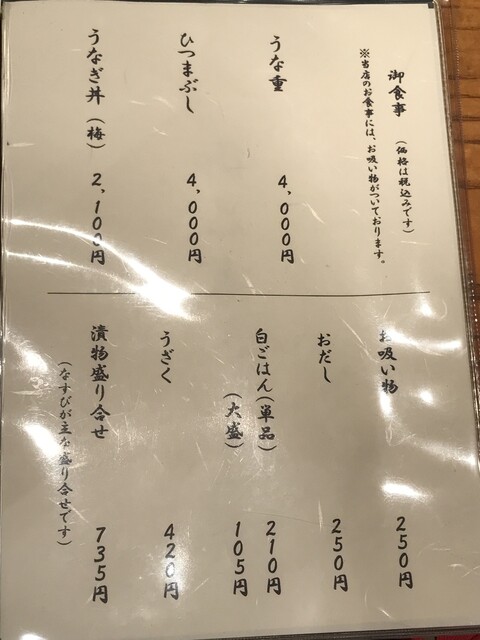 御食事 (価格は税込みです)
※当店のお食事には、お吸い物がついております。
うな重 4,000円
ひつまぶし 4,000円
うなぎ丼 (梅) 2,100円
お吸い物 250円
おだし 250円
白ごはん(単品) 210円
(大盛) 105円
うざく 420円
漬物盛り合せ 735円
(なすびが主な盛り合せです)